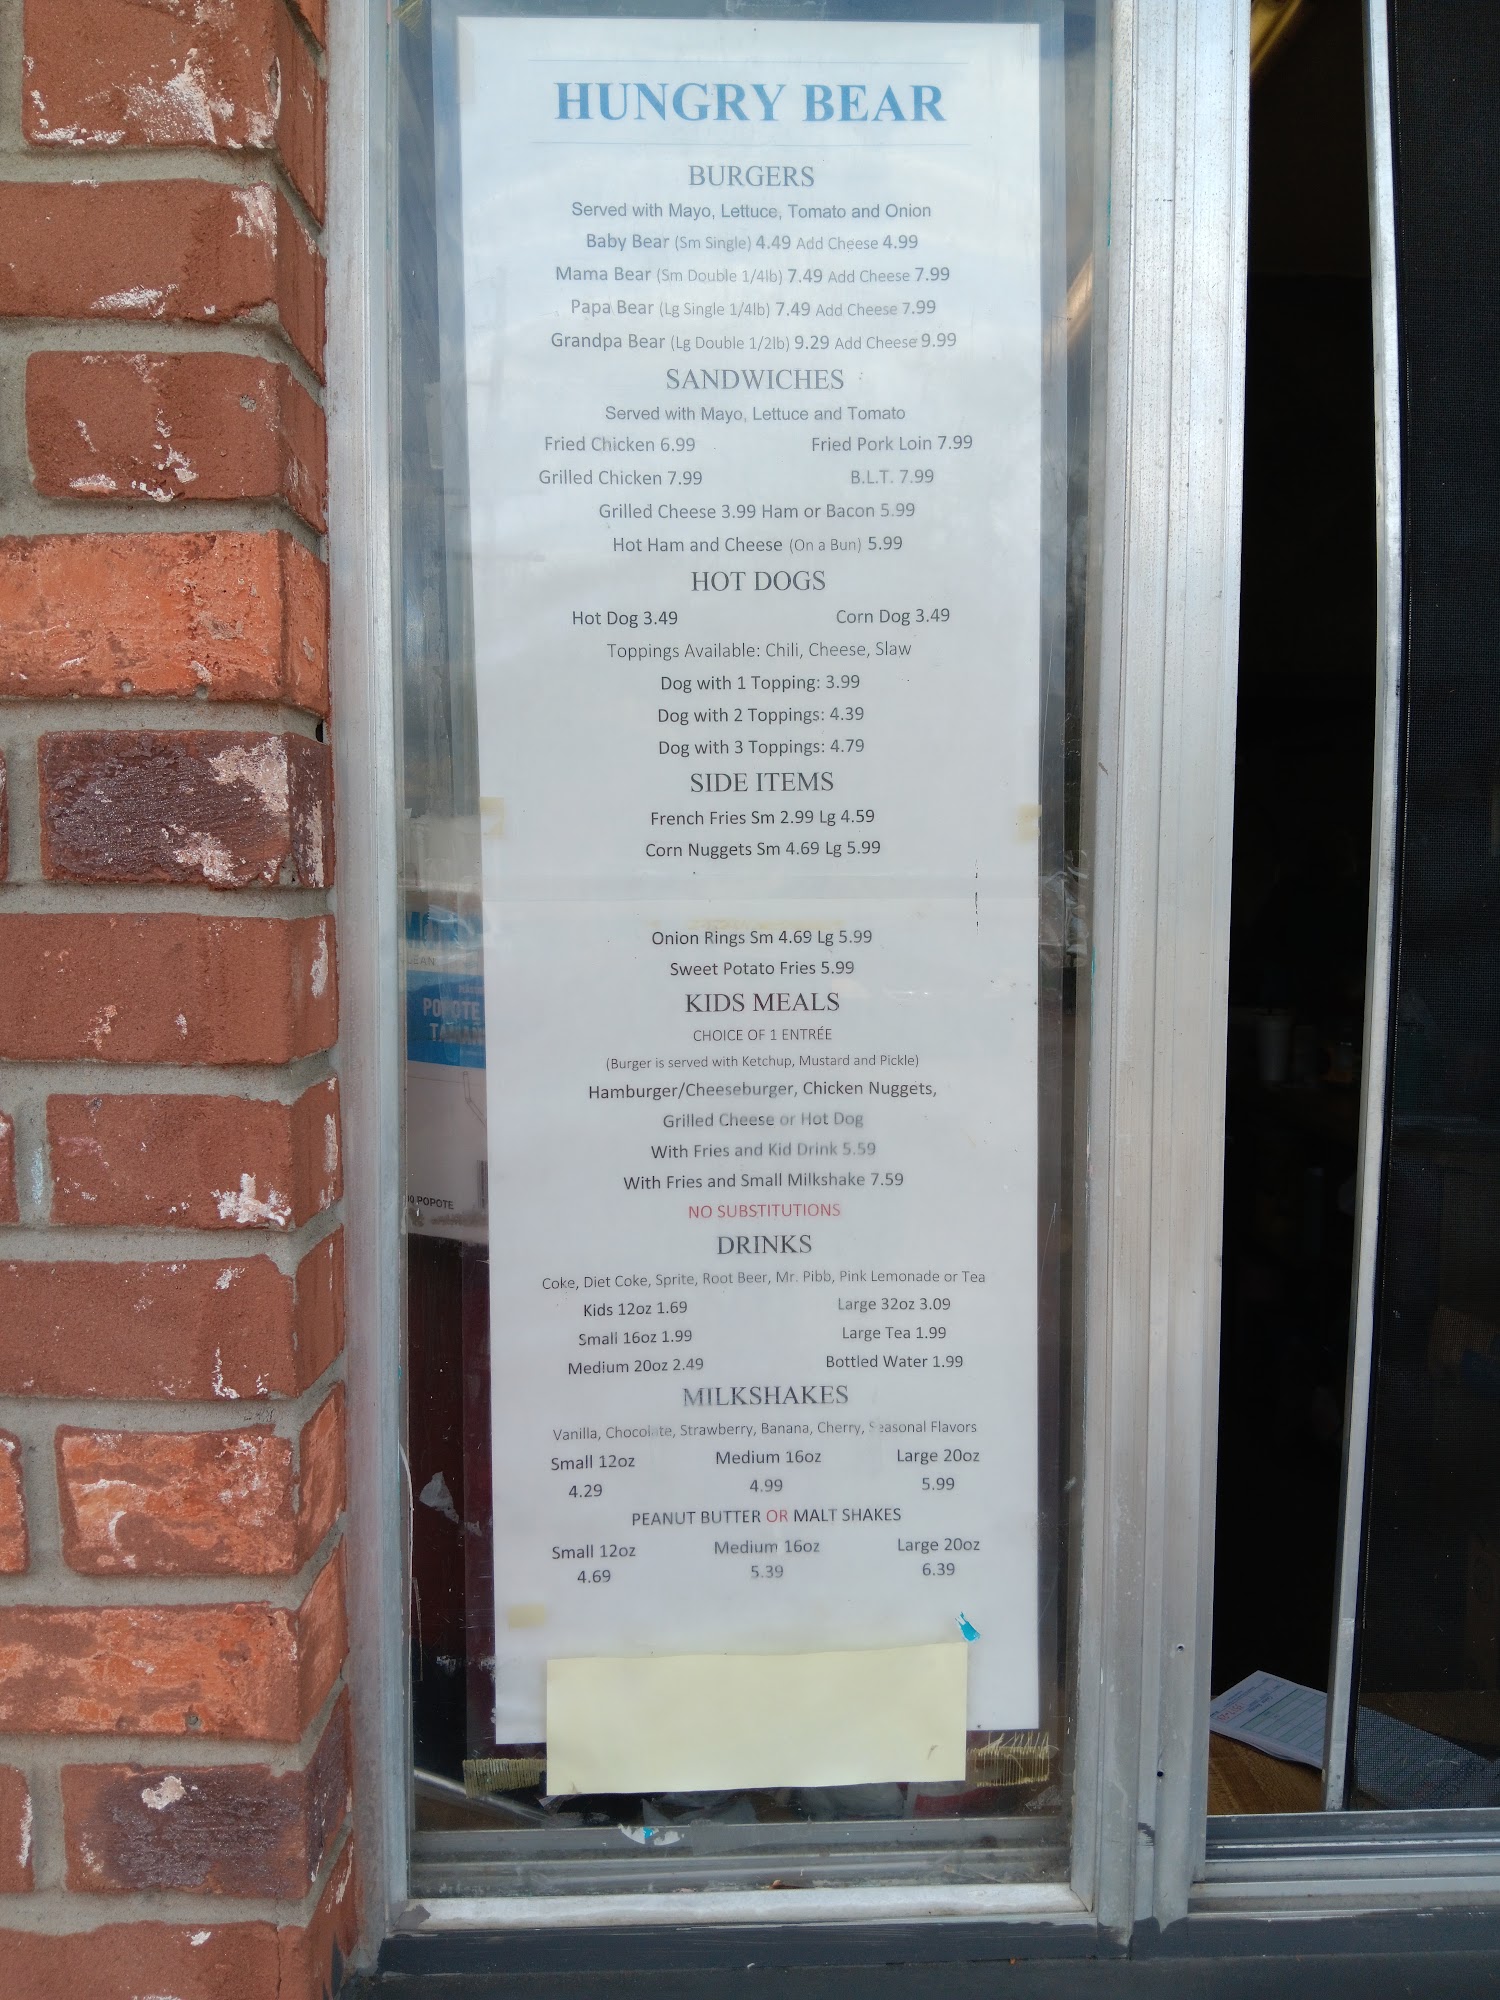 HUNGRY BEAR
BURGERS
Served with Mayo, Lettuce, Tomato and Onion
Baby Bear (Sm Single) 4.49 Add Cheese 4.99
Mama Bear (Sm Double 1/4lb) 7.49 Add Cheese 7.99
Papa Bear (Lg Single 1/4lb) 7.49 Add Cheese 7.99
Grandpa Bear (Lg Double 1/2lb) 9.29 Add Cheese 9.99
SANDWICHES
Served with Mayo, Lettuce and Tomato
Fried Chicken 6.99 Fried Pork Loin 7.99
Grilled Chicken 7.99 B.L.T. 7.99
Grilled Cheese 3.99 Ham or Bacon 5.99
Hot Ham and Cheese (On a Bun) 5.99
HOT DOGS
Hot Dog 3.49 Corn Dog 3.49
Toppings Available: Chili, Cheese, Slaw
Dog with 1 Topping: 3.99
Dog with 2 Toppings: 4.39
Dog with 3 Toppings: 4.79
SIDE ITEMS
French Fries Sm 2.99 Lg 4.59
Corn Nuggets Sm 4.69 Lg 5.99
Onion Rings Sm 4.69 Lg 5.99
Sweet Potato Fries 5.99
KIDS MEALS
CHOICE OF 1 ENTRÉE
(Burger is served with Ketchup, Mustard and Pickle)
Hamburger/Cheeseburger, Chicken Nuggets,
Grilled Cheese or Hot Dog
With Fries and Kid Drink 5.59
With Fries and Small Milkshake 7.59
NO SUBSTITUTIONS
DRINKS
Coke, Diet Coke, Sprite, Root Beer, Mr. Pibb, Pink Lemonade or Tea
Kids 12oz 1.69 Large 32oz 3.09
Small 16oz 1.99 Large Tea 1.99
Medium 20oz 2.49 Bottled Water 1.99
MILKSHAKES
Vanilla, Chocolate, Strawberry, Banana, Cherry, Seasonal Flavors
Small 12oz Medium 16oz Large 20oz
4.29 4.99 5.99
PEANUT BUTTER OR MALT SHAKES
Small 12oz Medium 16oz Large 20oz
4.69 5.39 6.39
POPOTE
POPOTE